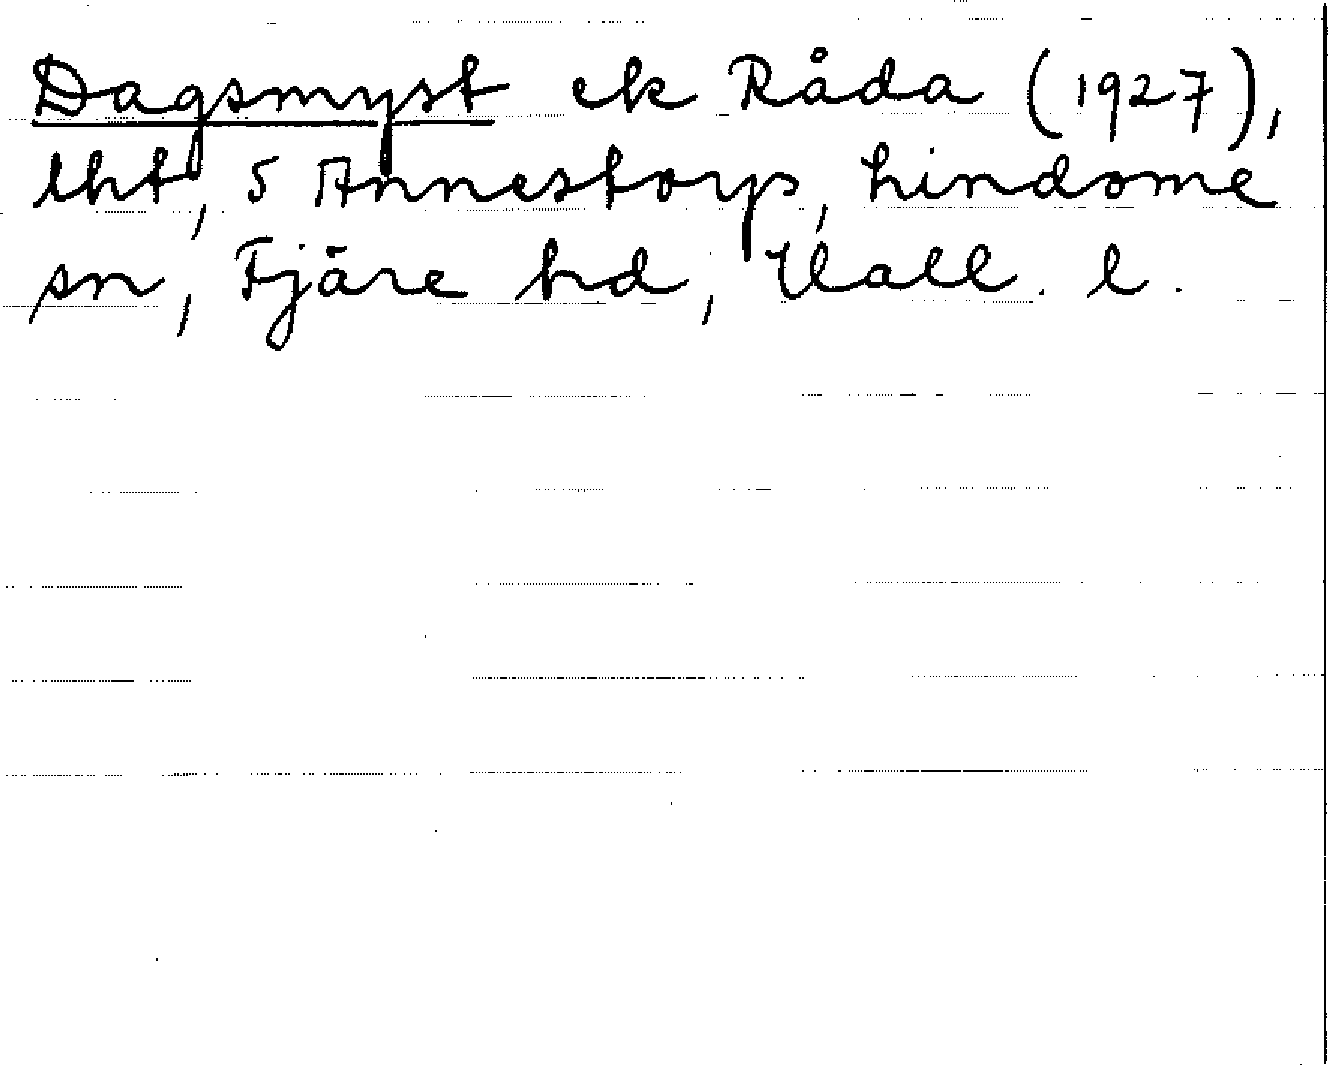 Dagsmyst ek Råda (1927),
lht, 5 Annestorp, Lindome
sn, Fjäre hd, Hall. l.